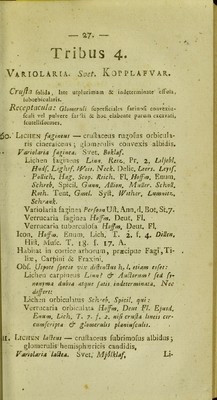 — 27. —
Tribus 4.
VARIOLARIA. Svet. KOPPLAFVAR.
Crusta solida, late utplurimum & indeterminate effusa,
suborbicularis.
Receptacula: Glomeruli superficiales farinosi convexiu-
sculi vel pulvere farsti & huc elabente parum cacavati,
60. LICHEN fagineus — crustaceus rugosus orbicula-
ris cinerascens; glomerulis convexis albidis.
Variolaria fagina. Svet. Boklaf.
Lichen fagineus Linn. Retz. Pr. 2, Liljebl,
Huds, Lightf. Web. Neck. Delic, Leers. Leyss.
Pollich, Hag, Scop. Reich. Fl, Hoffm, Enum,
Schreb, Spicil, Gunn, Allion, Muller. Scholl,
Roth. Tent, Gmel. Syst, Wulfen, Lumnitz,
Schrank.
Variolaria fagina Person Ust. Ann, 1, Bot, St, 7.
Verrucaria faginea Hoffm, Deut, Fl.
Verrucaria faginea Hoffm, Deut, Fl,
Icon, Hoffm. Enum, Lich, T. 2, f. 4. Dillen,
Hist, Musc. T. 13. f. 17. A.
Habitat in cortice arborum, præcipue Fagi, Ti-
liæ, Carpini & Fraxini,
Obs. Usque specie vix distinctus h. l. etiam esset:
Lichen carpineus Linn? & Auctorum? sed se-
nonyma dubia atque satis indeterminata. Nec
differt:
Lichen orbiculatus Schreb, Spicil, qui:
Verrucaria orbiculata Hoffm, Deut Fl. Ejusd,
Enum, Lich, T. 7. f. 2. nisi crusta limite cir-
cumscripta & glomerulis planiusculis.
LICHEN lacteus — crustaceus subrimosus albidus;
glomerulis hemisphæricis candidis,
Variolaria lactea. Svet. Mjölklaf,
Li-